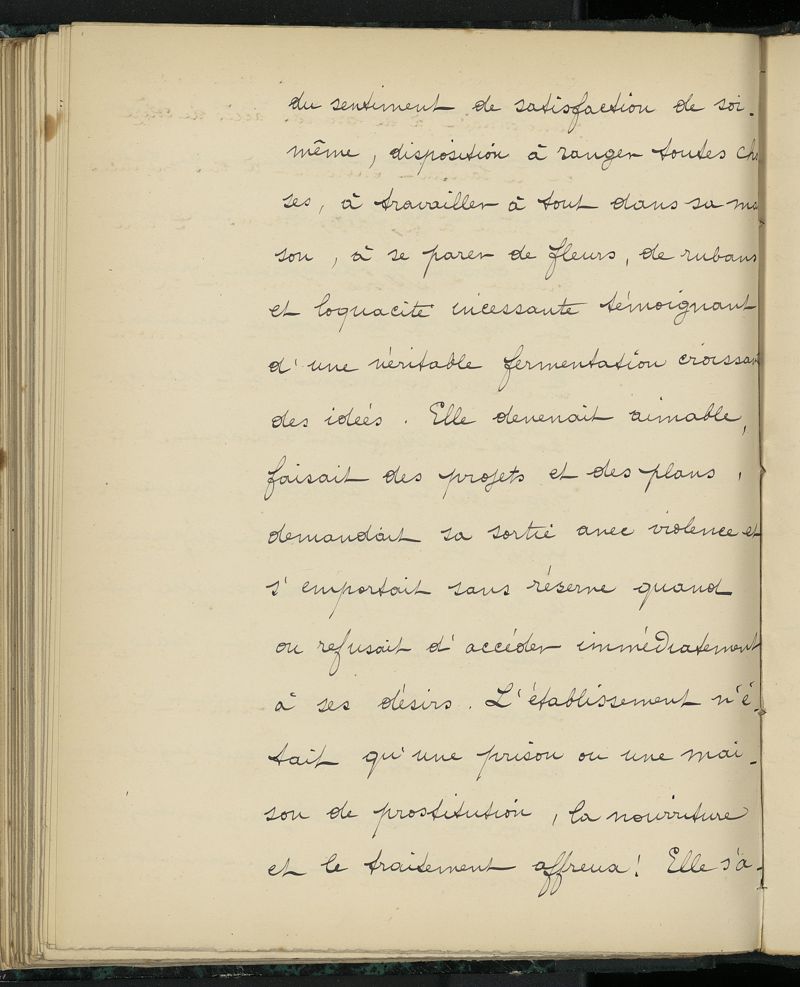 du sentiment de satisfaction de soi-
même, disposition à ranger toutes cho
ses, à travailler à tout dans sa mai
son, à se parer de fleurs, de rubans
et loquacité incessante témoignant
d'une véritable fermentation croissant
des ideés. Elle devenait aimable,
faisait des projets et des plans,
demandait sa sortie avec violence et
s'emportait sans réserve quand
on refusait d'accéder immédiatement
à ses désirs. L'établissement n'é-
tait qu'une prison ou une mai-
son de prostitution, la nourriture
et le traitement affreux! Elle s'a-